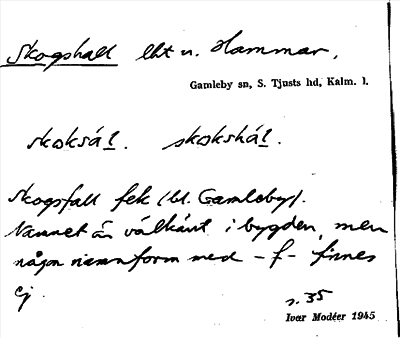 Skogshall lht u. Hammar.
Gamleby sn, S. Tjusts hd, Kalm. l.
skoksál. skokshál.
Skogsfall fek (bl. Gamleby).
Namnet är välkänt i bygden, men
någon namnform med -f- finnes
ej.
s. 35
Ivar Modéer 1945